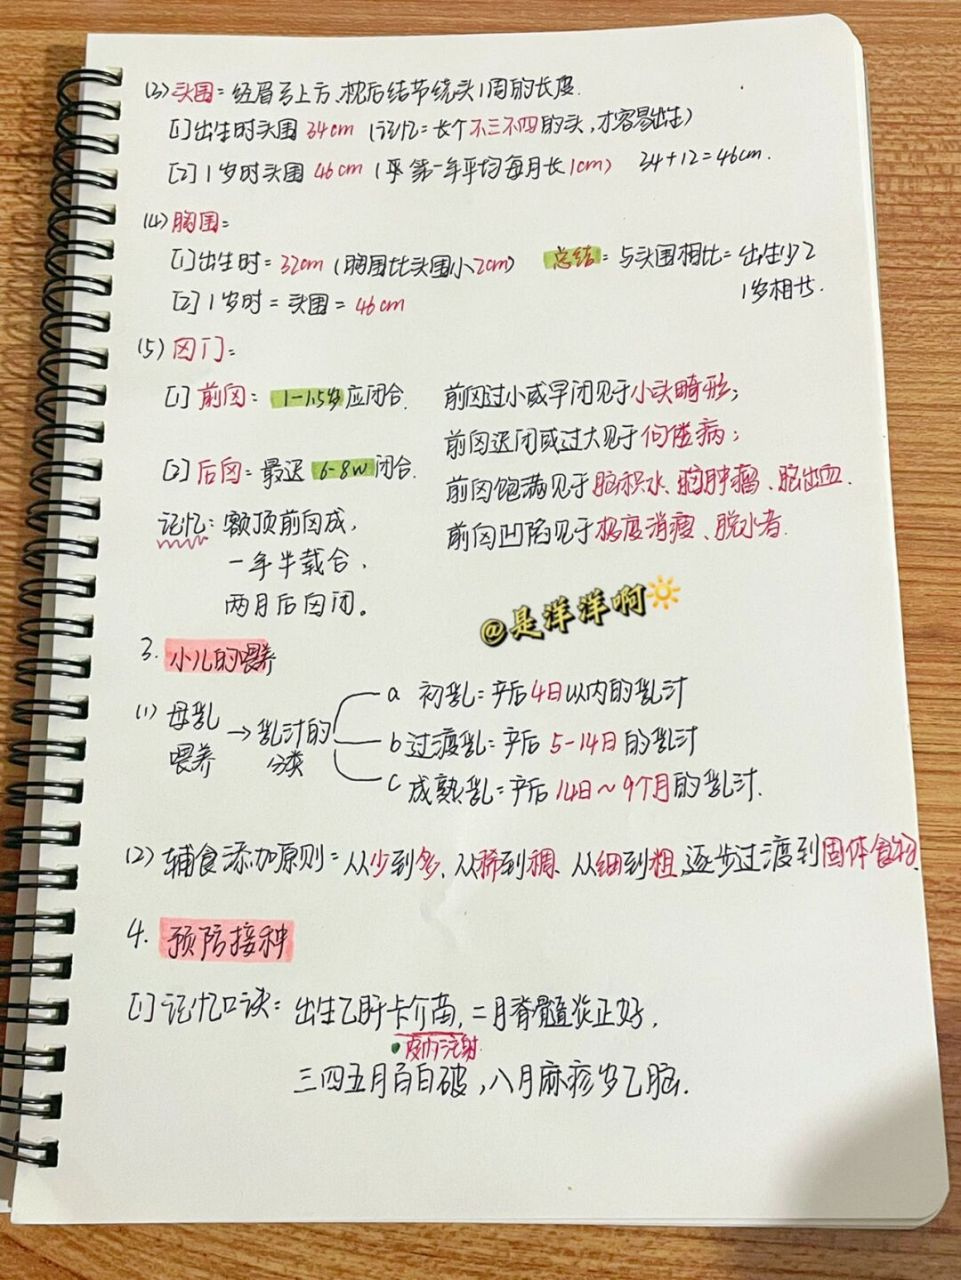 (3) 头围：经眉弓上方、枕后结节绕头1周的长度.
[1] 出生时头围 34cm (记忆：长个不三不四的头,才容易出生)
[2] 1岁时头围 46cm (第一年平均每月长1cm) 34+12=46cm.
(4) 胸围：
[1] 出生时=32cm (胸围比头围小2cm) 总结：与头围相比=出生少2
[2] 1岁时=头围=46cm 1岁相当.
(5) 囟门：
[1] 前囟：1-1.5岁应闭合. 前囟过小或早闭见于小头畸形;
前囟迟闭或过大见于佝偻病;
[2] 后囟：最迟6-8w闭合. 前囟饱满见于脑积水、脑肿瘤、脑出血.
记忆：额顶前囟成, 前囟凹陷见于极度消瘦、脱水者.
一年半载合,
两月后囟闭。
@是洋洋啊
3. 小儿的喂养
(1) 母乳喂养→乳汁的分类 a 初乳：产后4日以内的乳汁
b 过渡乳：产后5-14日的乳汁
c 成熟乳：产后14日~9个月的乳汁.
(2) 辅食添加原则：从少到多、从稀到稠、从细到粗,逐步过渡到固体食物.
4. 预防接种
[1] 记忆口诀：出生乙肝卡介苗,二月脊髓炎正好,
皮内注射
三四五月百白破,八月麻疹岁乙脑.